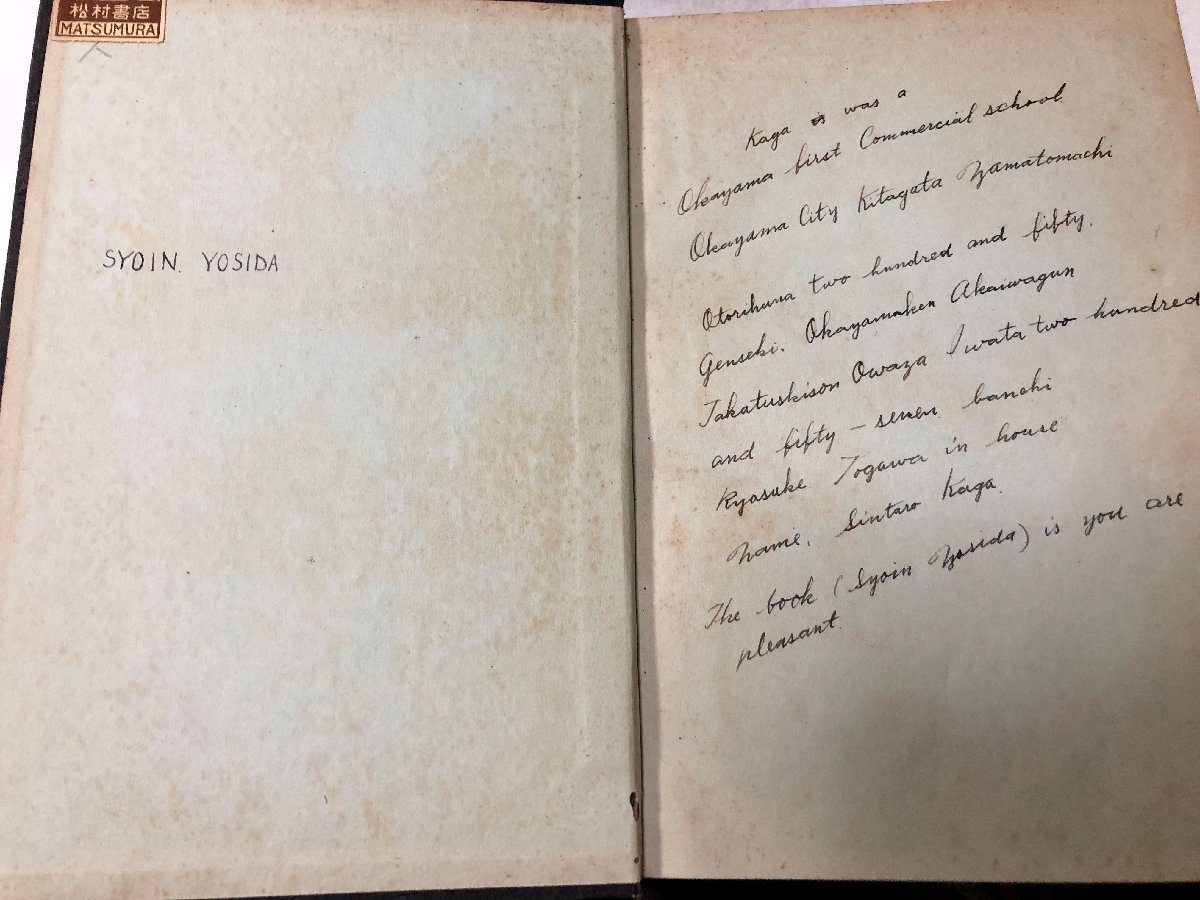 松村書店
MATSUMURA
SYOIN. YOSIDA
Kaga is was a
Okayama first Commercial school
Okayama City Kitagata Yamatomachi
Otorihana two hundred and fifty.
Genseki. Okayamaken Akaiwagun
Takatuskison Owaza Iwata two hundred
and fifty-seven banchi
Ryosuke Togawa in house
name. Sintaro Kaga.
The book (Syoin Yosida) is you are
pleasant.